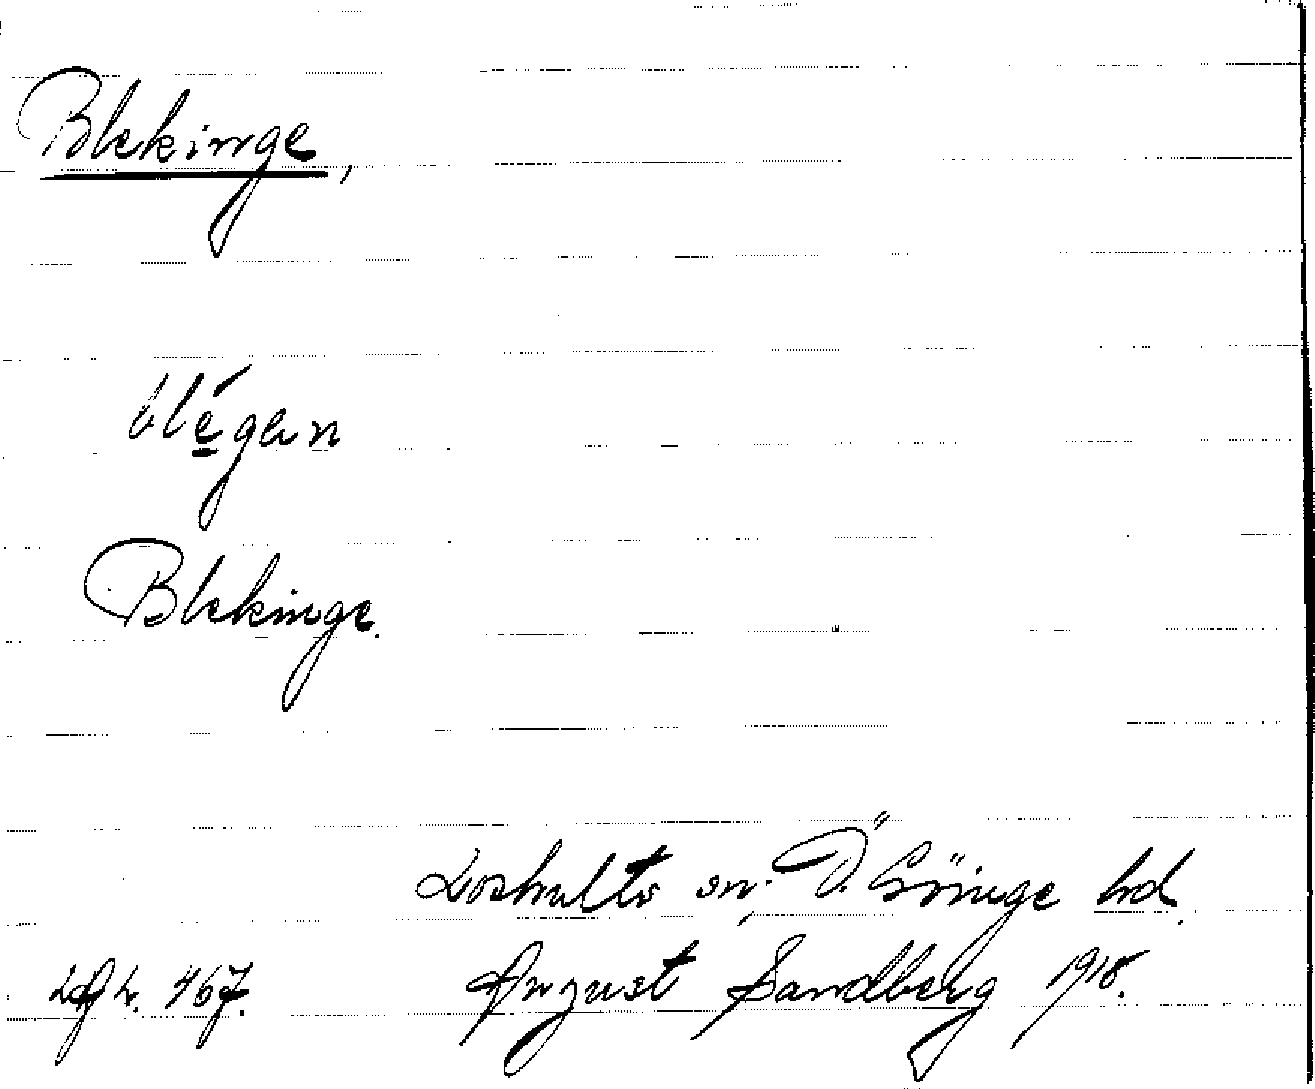 Blekinge,
blégen
Blekinge.
Loshults sn. Ö. Göinge hd.
August Sandberg 1918.
467.